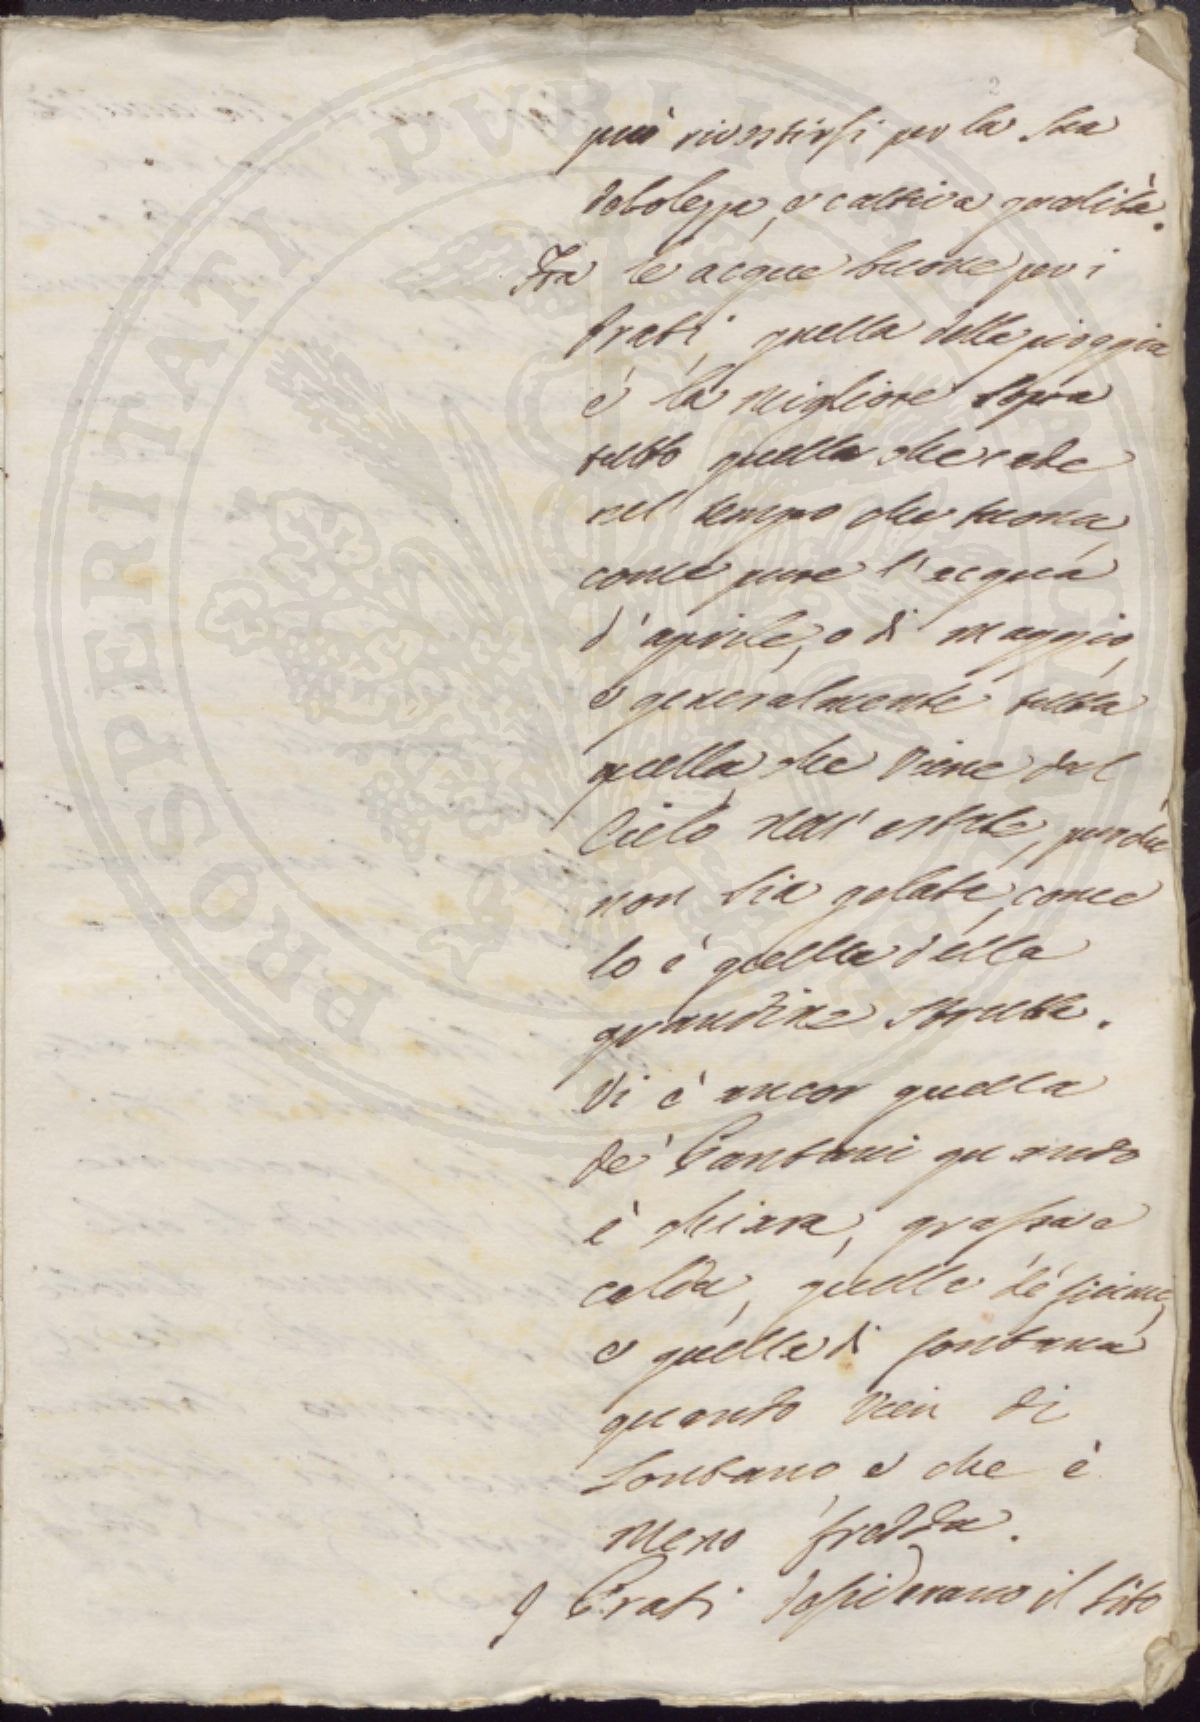 2
può rivestirsi per la sua
debolezza, e cattiva qualità.
Fra le acque buone per i
Prati, quella della pioggia
è la migliore sopra
tutto quella che cade
nel tempo che tuona,
come pure l'acqua
d'aprile, o di maggio,
e generalmente tutta
quella che viene dal
Cielo nell'estate, purche
non sia gelata, come
lo è quella della
grandine strutta.
Vi è ancor quella
de' Pantani quando
è chiara, grassa e
calda, quella de' fiumi,
e quella di fontana
quando vien di
Lontano, e che è
meno fredda.
I Prati desiderano il sito
PROSPERITATI PUBLICAE